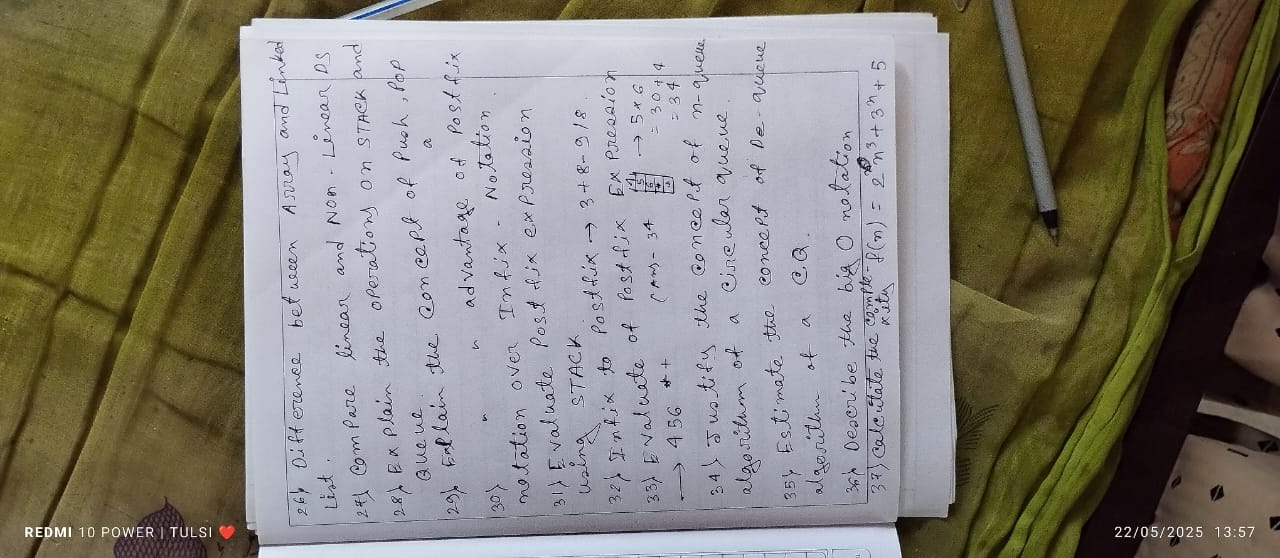 26) Difference between Array and Linked
List.
27) Compare linear and Non-Linear DS
28) Explain the operations on STACK and
Queue.
29) Explain the concept of Push, Pop
30) " " a advantage of Postfix
notation over Infix-Notation.
31) Evaluate Postfix expression
using STACK
32) Infix to Postfix → 3+8-9/8.
33) Evaluate of Postfix Expression
→ 456 *+ (Ans- 34 → 5*6
= 30+4
= 34
34) Justify the concept of n-queue
algorithm of a circular queue.
35) Estimate the concept of De-queue
algorithm of a C.Q.
36) Describe the big O notation
37) Calculate the comple-
xity f(n) = 2 n³+3ⁿ+5
REDMI 10 POWER | TULSI ❤️
22/05/2025 13:57